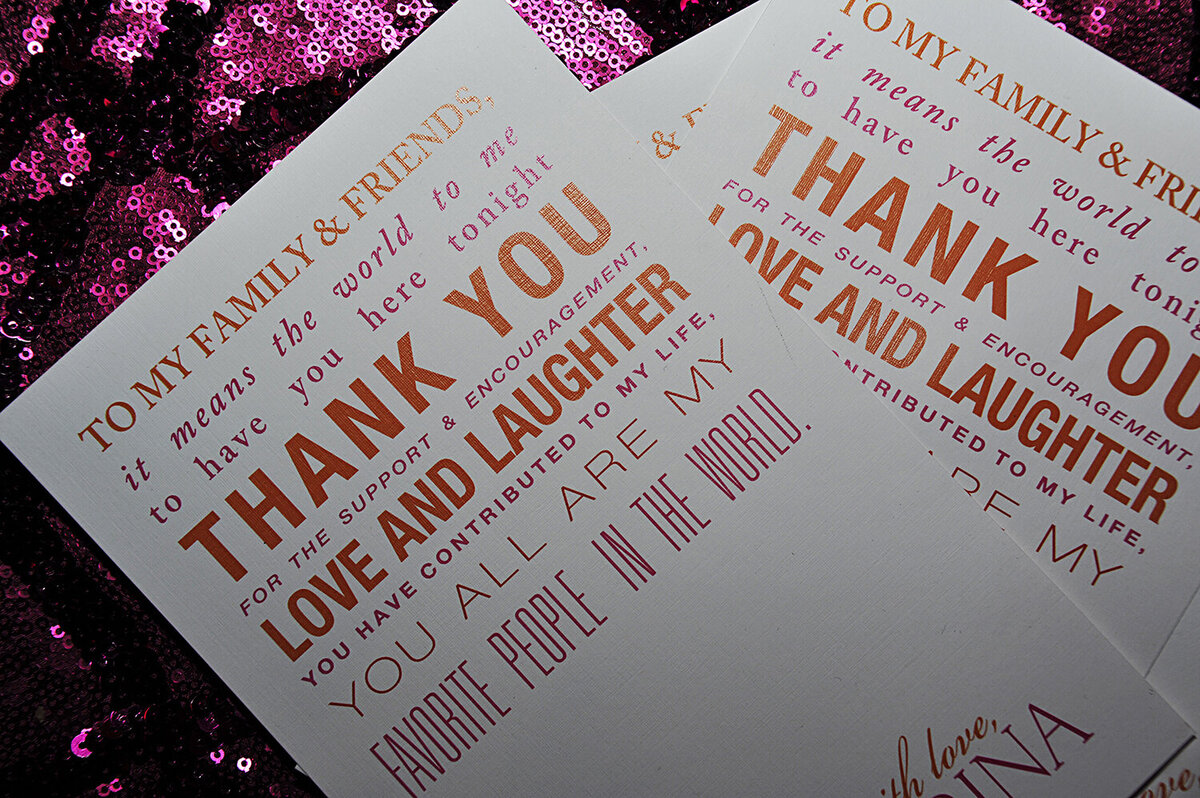 TO MY FAMILY & FRIENDS,
it means the world to me
to have you here tonight
THANK YOU
FOR THE SUPPORT & ENCOURAGEMENT,
LOVE AND LAUGHTER
YOU HAVE CONTRIBUTED TO MY LIFE,
YOU ALL ARE MY
FAVORITE PEOPLE IN THE WORLD.
love,
&
TO MY FAMILY &
it means the world to
to have you here
THANK YOU
FOR THE SUPPORT & ENCOURAGEMENT,
LOVE AND LAUGHTER
TO MY LIFE,
MY